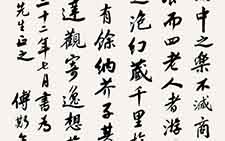 中之樂不減商
泉而四老人者游
泡幻藏千里於
有餘納芥子其
達觀寄逸想
三十二年七月書為
先生正之
傅斯年